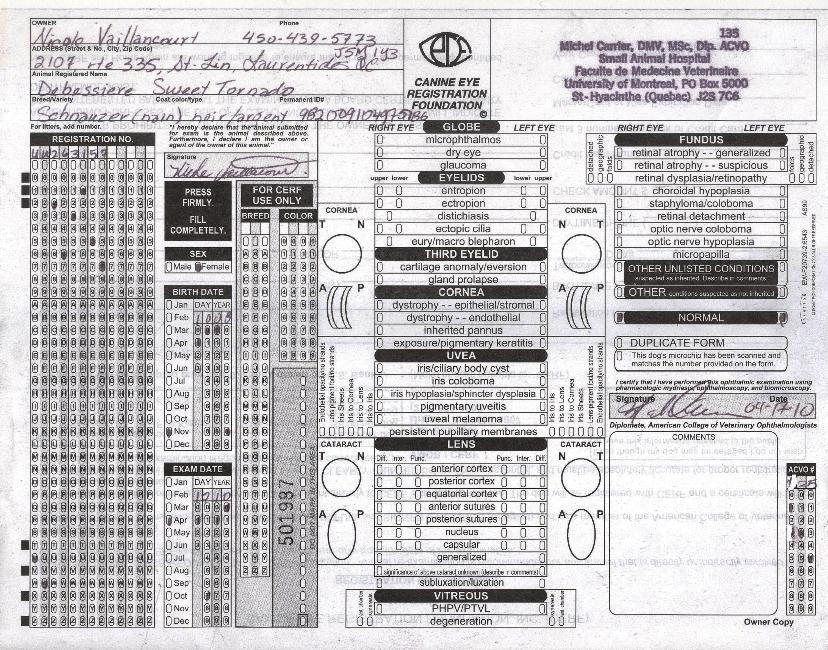 OWNER Phone
Nicole Vaillancourt 450-439-5773
ADDRESS (Street & No., City, Zip Code) J5M 1Y3
2107 rte 335, St-Lin Laurentides Qc
Animal Registered Name
Debassiere Sweet Tornado
Breed/Variety Coat color/type: Permanent ID#
Schnauzer (nain) noir/argent
CANINE EYE
REGISTRATION
FOUNDATION
135
Michel Carrier, DMV, MSc, Dip. ACVO
Small Animal Hospital
Faculte de Medecine Veterinaire
University of Montreal, PO Box 5000
St-Hyacinthe (Quebec) J2S 7C6
For litters, add number.
REGISTRATION NO.
"I hereby declare that the animal submitted
for exam is the animal described above.
Furthermore, I declare I am the owner or
agent of the owner of this animal."
Signature
PRESS
FIRMLY.
FILL
COMPLETELY.
SEX
Male Female
BIRTH DATE
Jan DAY YEAR
Feb
Mar
Apr
May
Jun
Jul
Aug
Sep
Oct
Nov
Dec
EXAM DATE
Jan DAY YEAR
Feb
Mar
Apr
May
Jun
Jul
Aug
Sep
Oct
Nov
Dec
FOR CERF
USE ONLY
BREED COLOR
501987
RIGHT EYE GLOBE LEFT EYE
microphthalmos
dry eye
glaucoma
upper lower EYELIDS upper lower
entropion
ectropion
distichiasis
ectopic cilia
eury/macro blepharon
THIRD EYELID
cartilage anomaly/eversion
gland prolapse
CORNEA
dystrophy - - epithelial/stromal
dystrophy - - endothelial
inherited pannus
exposure/pigmentary keratitis
UVEA
iris/ciliary body cyst
iris coloboma
iris hypoplasia/sphincter dysplasia
pigmentary uveitis
uveal melanoma
persistent pupillary membranes
LENS
Diff. Inter. Punc. Punc. Inter. Diff.
anterior cortex
posterior cortex
equatorial cortex
anterior sutures
posterior sutures
nucleus
capsular
generalized
significance of above cataract unknown (describe in comments)
subluxation/luxation
VITREOUS
PHPV/PTVL
degeneration
CORNEA
T N
A P
CATARACT
A P
CORNEA
N T
A P
CATARACT
A P
Iris to Iris
Iris to Lens
Iris to Cornea
Iris Sheets
RIGHT EYE LEFT EYE
FUNDUS
detached
geographic
folds
retinal atrophy - - generalized
retinal atrophy - - suspicious
retinal dysplasia/retinopathy
choroidal hypoplasia
staphyloma/coloboma
retinal detachment
optic nerve coloboma
optic nerve hypoplasia
micropapilla
OTHER UNLISTED CONDITIONS
suspected as inherited. Describe in comments
OTHER conditions suspected as not inherited
NORMAL
DUPLICATE FORM
This dog's microchip has been scanned and
matches the number provided on the form.
I certify that I have performed this ophthalmic examination using
pharmacologic mydriasis, ophthalmoscopy, and biomicroscopy.
Signature Date
04-17-10
Diplomate, American College of Veterinary Ophthalmologists
COMMENTS
ACVO #
135
Owner Copy